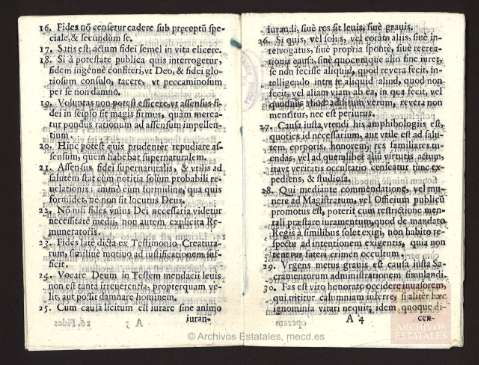 16. Fides nō censetur cadere sub præceptū spe-
ciale, & secundùm se.
17. Satis est actum fidei semel in vita elicere.
18. Si à potestate publica quis interrogetur,
fidem ingenuè confiteri, vt Deo, & fidei glo-
riosum consulo, tacere, vt peccaminosum
per se non damno.
19. Voluntas non potest efficere, vt assensus fi-
dei in seipso sit magis firmus, quàm merea-
tur pondus rationum ad assensum impellen-
tium.
20. Hinc potest quis prudenter repudiare as-
sensum, quem habebat supernaturalem.
21. Assensus fidei supernaturalis, & vtilis ad
salutem stat cum notitia solùm probabili re-
uelationis: immò cum formidine, qua quis
formidet, ne non sit locutus Deus.
22. Nō nisi fides vnius Dei necessaria videtur
necessitate medij, non autem explicita Re-
muneratoris.
23. Fides latè dicta ex Testimonio Creatura-
rum, similiue motiuo ad iustificationem suf-
ficit.
24. Vocare Deum in Testem mendacij leuis
non est tanta irreuerentia, propter quam ve-
lit, aut possit damnare hominem.
25. Cum causa licitum est iurare sine animo
iuran-
iurandi, siuè res sit leuis, siuè grauis.
26. Si quis, vel solus, vel coram alijs, siuè in-
terrogatus, siuè propria sponte, siuè recrea-
tionis causa, siuè quocumque alio fine iuret,
se non fecisse aliquid, quod reuera fecit,
intelligendo intra se aliquid aliud, quod non
fecit, vel aliam viam ab ea, in qua fecit, vel
quoduis aliud additum verum, reuera non
mentitur, nec est periurus.
27. Causa iusta vtendi amphibologijs est,
quoties id necessarium, aut vtile est ad salu-
tem corporis, honorem, res familiares tu-
endas, vel ad quemlibet alium virtutis actum,
ita vt veritatis occultatio censeatur tunc ex-
pediens, & studiosa.
28. Qui mediante commendatione, vel mu-
nere ad Magistratum, vel Officium publicū
promotus est, poterit cum restrictione men-
tali præstare iuramentum, quod de mandato
Regis à similibus solet exigi, non habito re-
spectu ad intentionem exigentis, quia non
tenetur fateri crimen occultum.
29. Vrgens metus grauis est causa iusta Sa-
cramentorum administrationem simulandi.
30. Fas est viro honorato occidere inuasorem,
qui nititur calumniam inferre, si aliter hæc
ignominia vitari nequit, idem quoque di-
A 4
cen-
© Archivos Estatales, mecd.es
ARCHIVOS
ESTATALES